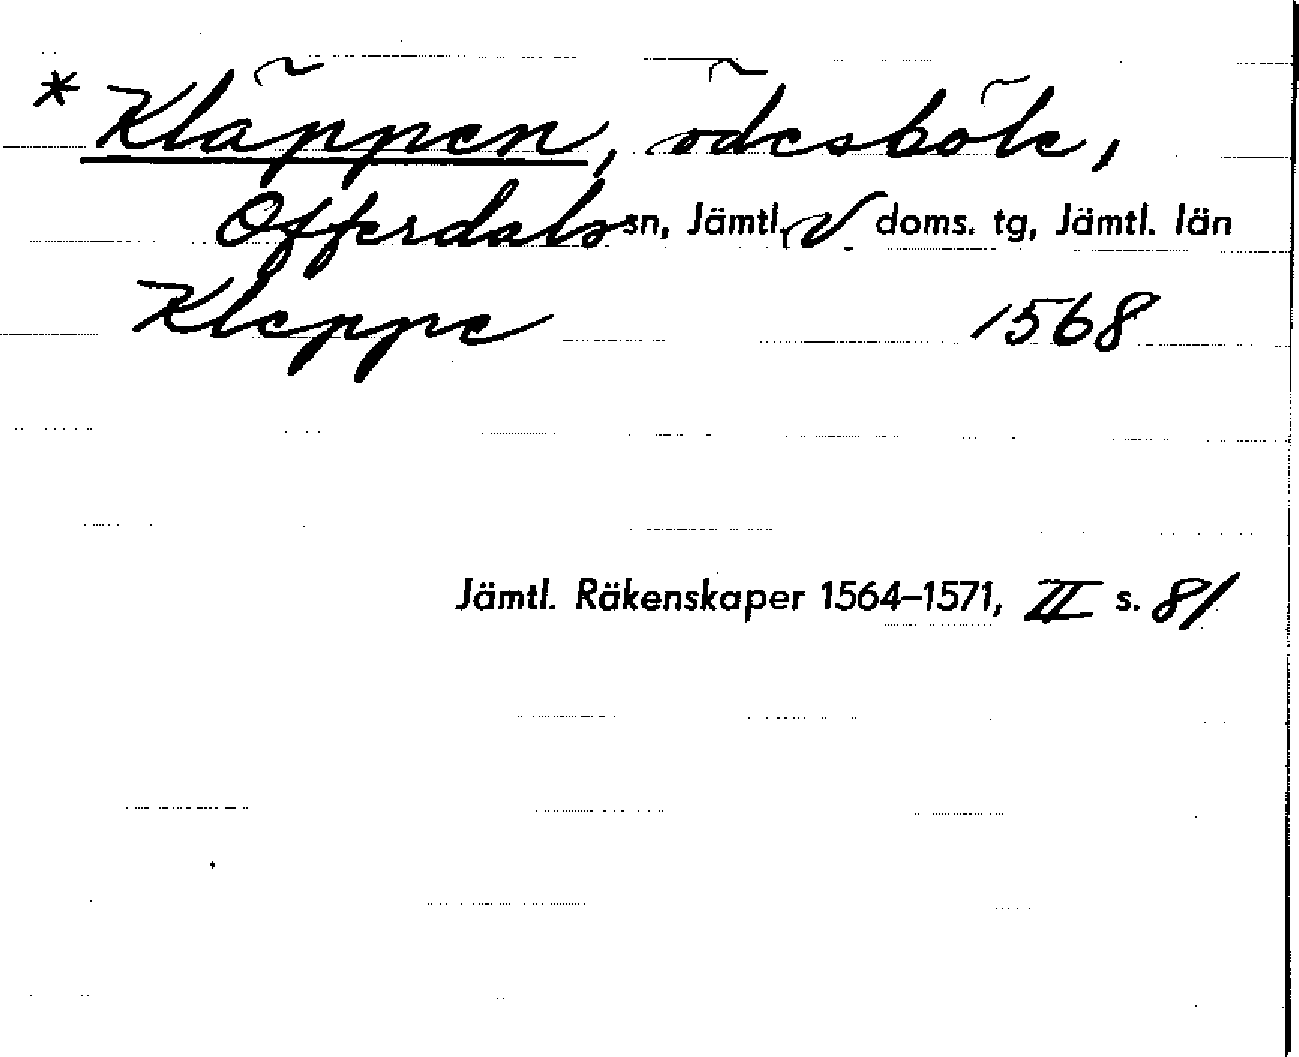 * Kläppen, ödesböle,
Offerdals sn, Jämtl. V doms. tg, Jämtl. län
Kleppe 1568
Jämtl. Räkenskaper 1564–1571, II s. 81